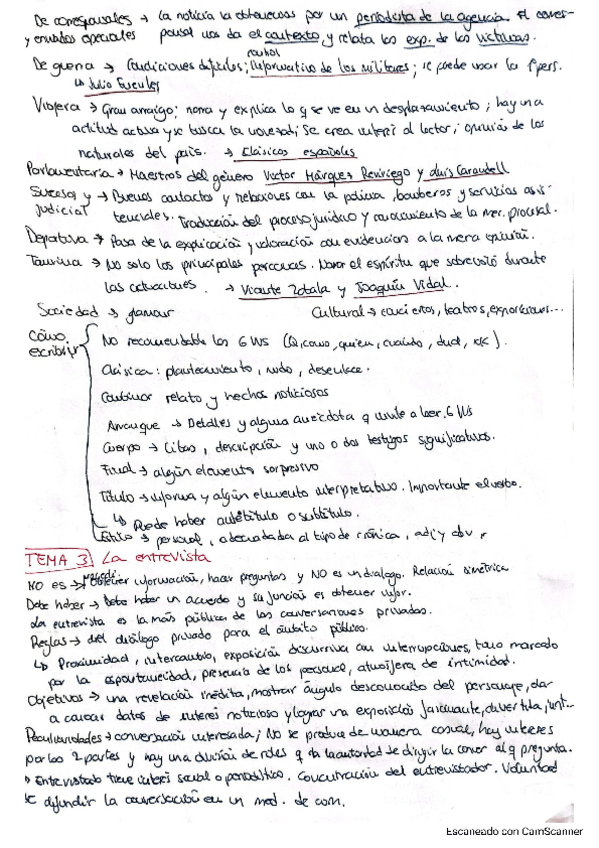 De corresponsales → La noticia la obtenemos por un periodista de la agencia. El corres-
y enviados especiales ponsal nos da el contexto y relata las exp. de las víctimas.
control
De guerra → Condiciones difíciles; informativo de los militares; se puede usar la 1ª pers.
↳ Julio Fuentes
Viajera → Gran arraigo; narra y explica lo q se ve en un desplazamiento; hay una
actitud activa y se busca la novedad; Se crea interés al lector; opinión de los
naturales del país. → Clásicos españoles
Parlamentaria → Maestros del género Víctor Márquez Reviriego y Luis Carandell
Sucesos y → Buenos contactos y relaciones con la policía, bomberos y servicios asis-
judicial tenciales. Traducción del proceso jurídico y conocimiento de la mer. procesal.
Deportiva → Pasa de la explicación y valoración con evidencias a la mera opinión.
Taurina → No solo los principales personas. Narar el espíritu que sobrevoló durante
las actuaciones. → Vicente Zabala y Joaquín Vidal.
Sociedad → glamour Cultural → conciertos, teatros, exposiciones...
Cómo escribir No recomendable las 6 Ws (Q, como, quien, cuando, dnd, xk).
Clásica: planteamiento, nudo, desenlace.
Combinar relato y hechos noticiosos
Arranque → Detalles y alguna anécdota q invite a leer. 6 Ws
Cuerpo → Citas, descripción y uno o dos testigos significativos.
Final → algún elemento sorpresivo
Título → informa y algún elemento interpretativo. Importante el verbo.
↳ Puede haber antetítulo o subtítulo.
Estilo → personal, adecuada al tipo de crónica, adj y adv.
TEMA 3 La entrevista
NO es → obtener información, hacer preguntas y NO es un dialogo. Relación simétrica
Debe haber → Debe haber un acuerdo y su función es obtener infor.
La entrevista es la más pública de las conversaciones privadas.
Reglas → del diálogo privado para el ámbito público.
↳ Proximidad, intercambio, exposición discursiva con interrupciones, tono marcado
por la espontaneidad, presencia de lo personal, atmósfera de intimidad.
Objetivos → una revelación inédita, mostrar ángulo desconocido del personaje, dar
a conocer datos de interés noticioso y lograr una exposición fascinante, divertida, int...
Peculiaridades → conversación interesada; No se produce de manera casual, hay interes
por las 2 partes y hay una división de roles q da la autoridad de dirigir la conver al q pregunta.
Entrevistado tiene interés social o periodístico. Concentración del entrevistador. Voluntad
de difundir la conversación en un med. de com.
Escaneado con CamScanner